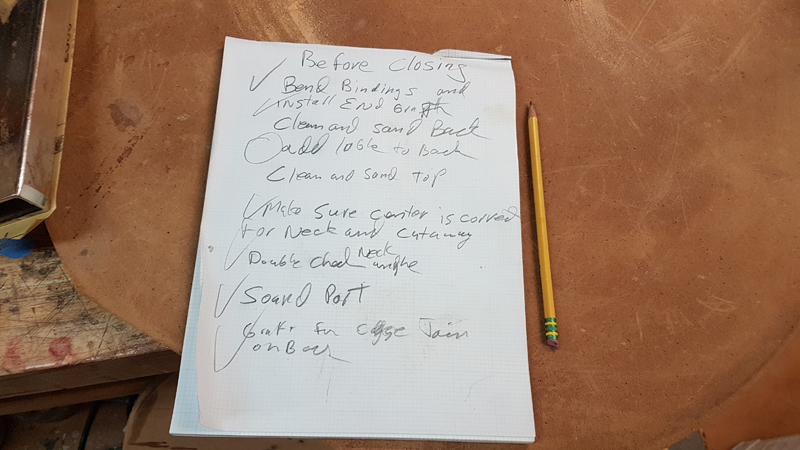 Before Closing
Bend Bindings and
install End Graft
Clean and Sand Back
add lable to Back
Clean and Sand Top
Make Sure Center is correct
for Neck and Cutaway
Double Check Neck angle
Sound Port
Graft for Join
on Back